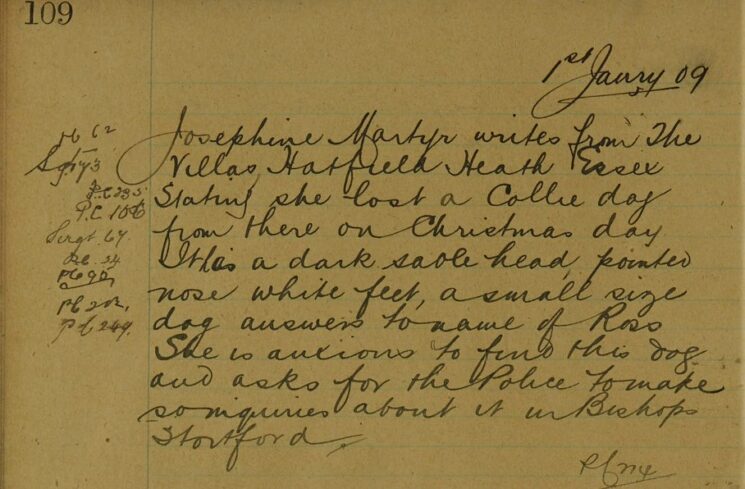 109
1st Janry 09
Pc 62
Sgt 173
P.C 235
P.C. 106
Sergt 67.
Pc. 24
Pc 90,
Pc 202,
Pc 249.
Josephine Martyr writes from The
Villas Hatfield Heath Essex
Stating she lost a Collie dog
from there on Christmas day
It has a dark sable head, pointed
nose white feet, a small size
dog answers to name of Ross
She is anxious to find this dog
and asks for the Police to make
some inquiries about it in Bishops
Stortford